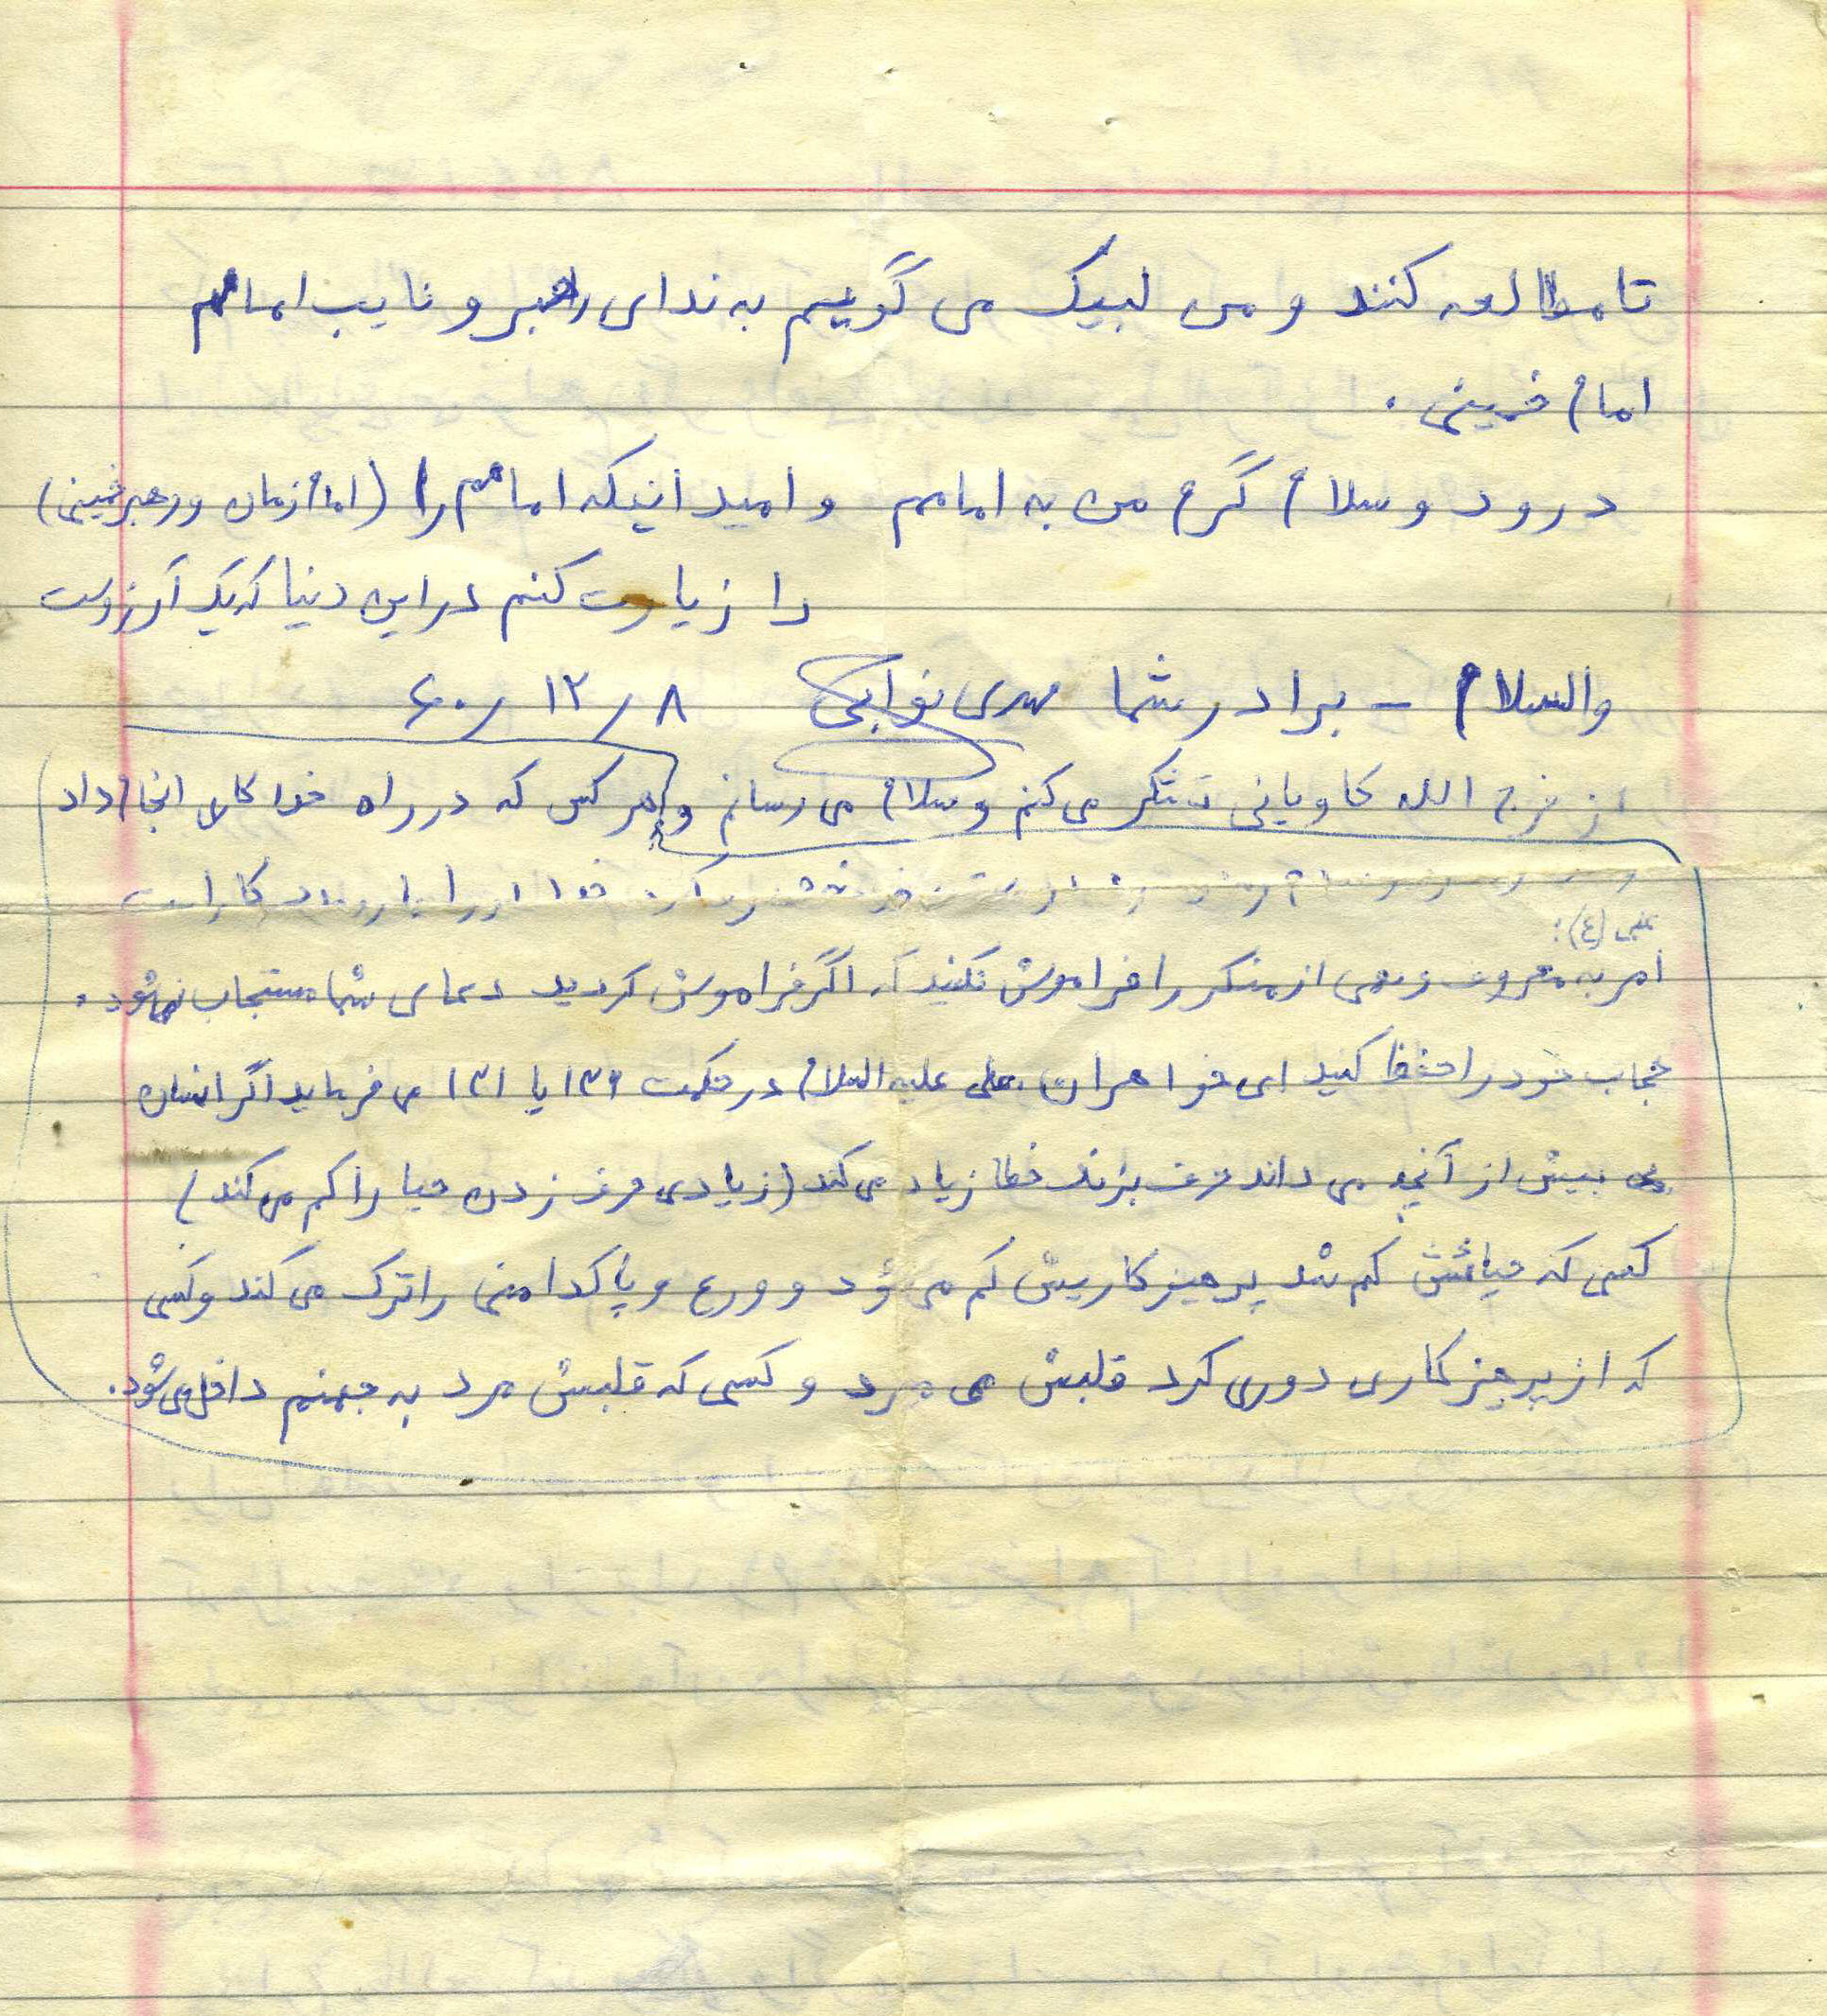 تا مطالعه کنند و من لبیک می گویم به ندای رهبر و نایب امامم
امام خمینی .
درود و سلام گرم من به امامم و امید اینکه امامم را (امام زمان و رهبر خمینی)
را زیارت کنم در این دنیا که یک آرزوست
والسلام - برادر شما مهدی نوابی ۶۰/۱۲/۸
از فرج الله کاویانی تشکر می کنم و سلام می رسانم و هر کس که در راه خدا کاری انجام داد
خدا او را
علی (ع):
امر به معروف و نهی از منکر را فراموش نکنید که اگر فراموش کردید دعای شما مستجاب نمی شود .
حجاب خود را حفظ کنید ای خواهران علی علیه السلام در حکمت ۱۳۹ یا ۱۳۱ می فرماید اگر انسان
بیش از آنچه می داند حرف بزند خطا زیاد می کند (زیادی حرف زدن حیا را کم می کند)
کسی که حیائش کم شد پرهیزکاریش کم می شود و ورع و پاکدامنی را ترک می کند و کسی
که از پرهیزکاری دوری کرد قلبش می میرد و کسی که قلبش مرد به جهنم داخل می شود.